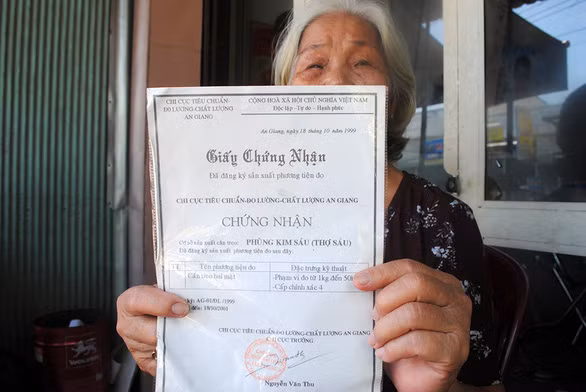 CHI CỤC TIÊU CHUẨN-
ĐO LƯỜNG-CHẤT LƯỢNG
AN GIANG
CỘNG HOÀ XÃ HỘI CHỦ NGHĨA VIỆT NAM
Độc lập - Tự do - Hạnh phúc
An Giang, ngày 18 tháng 10 năm 1999
Giấy Chứng Nhận
Đã đăng ký sản xuất phương tiện đo
CHI CỤC TIÊU CHUẨN-ĐO LƯỜNG-CHẤT LƯỢNG AN GIANG
CHỨNG NHẬN
Cơ sở sản xuất cân treo: PHÙNG KIM SÁU (THỢ SÁU)
Đã đăng ký sản xuất phương tiện đo sau đây.
Tên phương tiện đo
Đặc trưng kỹ thuật
Cân treo hai mặt
-Phạm vi đo từ 1kg đến
-Cấp chính xác 4
ký: AG-01/ĐL
đến: 18/10/2001
CHI CỤC TIÊU CHUẨN-ĐO LƯỜNG-CHẤT LƯỢNG AN GIANG
CHI CỤC TRƯỞNG
Nguyễn Văn Thu